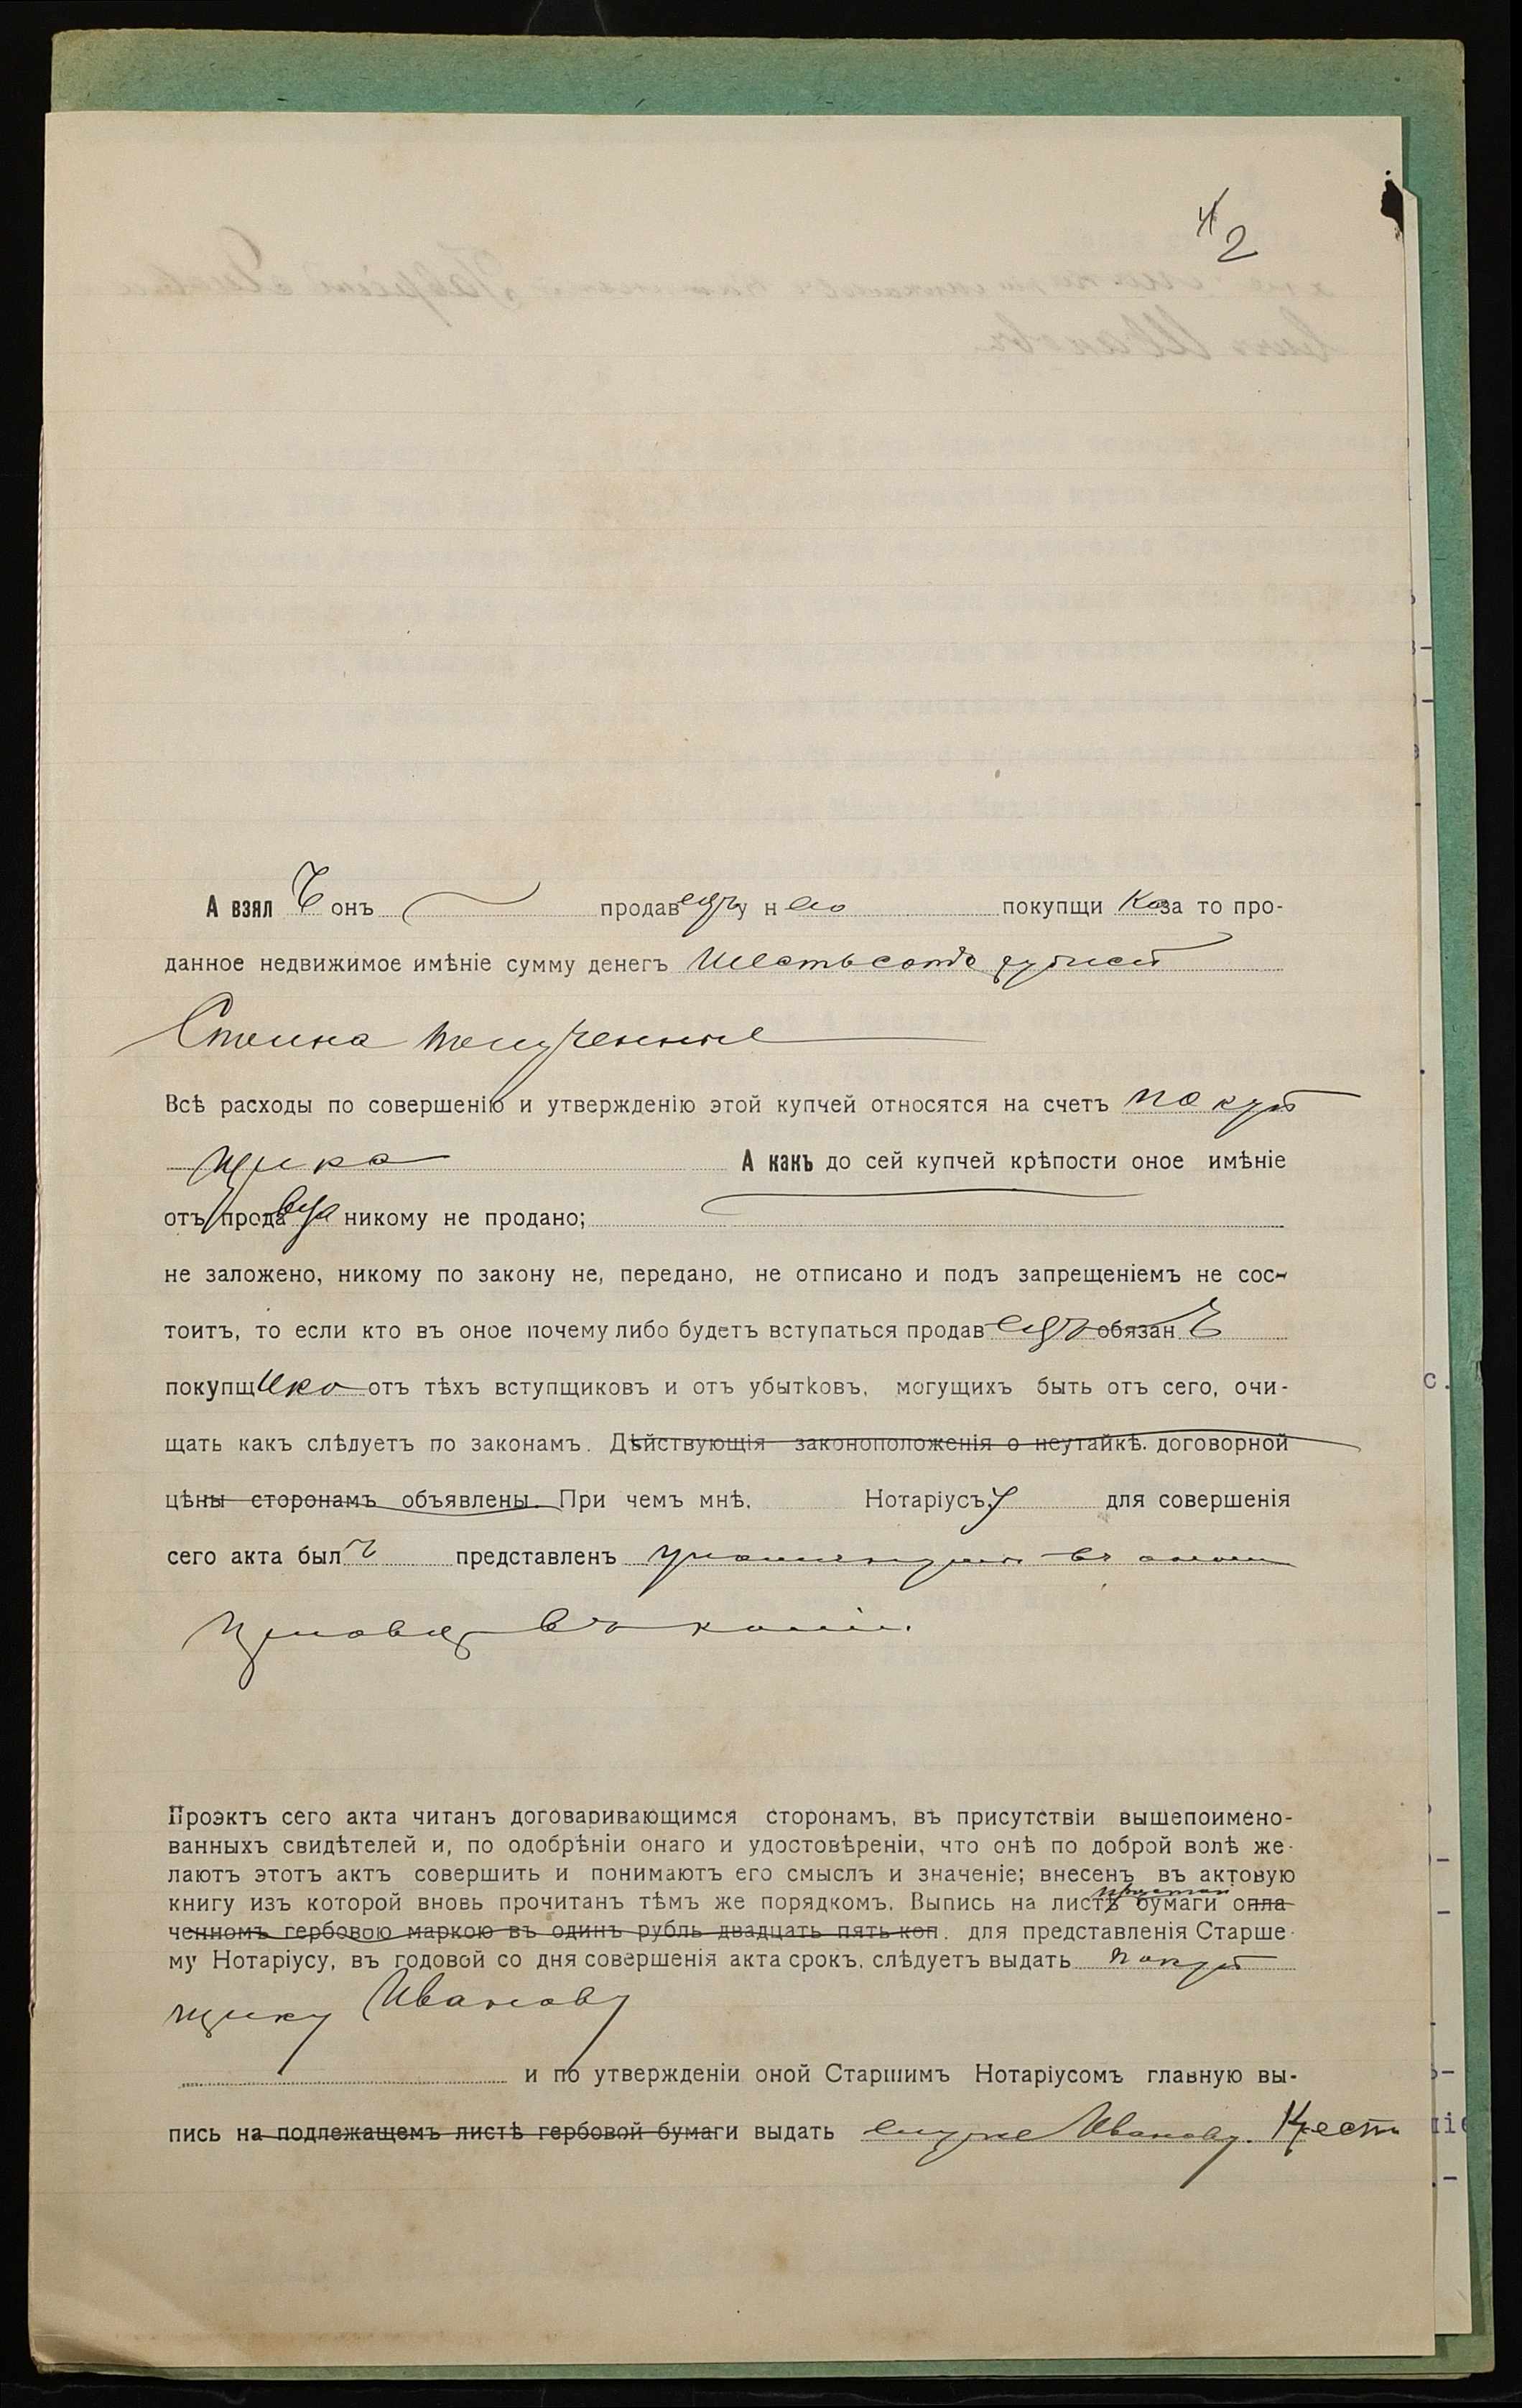 4 2
А взялъ онъ продавецъ у него покупщика за то про-
данное недвижимое имѣніе сумму денегъ шестьсотъ рублей
сполна полученные
Всѣ расходы по совершенію и утвержденію этой купчей относятся на счетъ покуп
щика А какъ до сей купчей крѣпости оное имѣніе
отъ продавца никому не продано;
не заложено, никому по закону не, передано, не отписано и подъ запрещеніемъ не сос-
тоитъ, то если кто въ оное почему либо будетъ вступаться продавецъ обязанъ
покупщика отъ тѣхъ вступщиковъ и отъ убытковъ, могущихъ быть отъ сего, очи-
щать какъ слѣдуетъ по законамъ. Дѣйствующія законоположенія о неутайкѣ. договорной
цѣны сторонамъ объявлены. При чемъ мнѣ, Нотаріусу, для совершенія
сего акта былъ представленъ
въ копіи.
Проэктъ сего акта читанъ договаривающимся сторонамъ, въ присутствіи вышепоимено-
ванныхъ свидѣтелей и, по одобрѣніи онаго и удостовѣреніи, что онѣ по доброй волѣ же-
лаютъ этотъ актъ совершить и понимаютъ его смыслъ и значеніе; внесенъ въ актовую
книгу изъ которой вновь прочитанъ тѣмъ же порядкомъ. Выпись на листѣ бумаги опла
ченномъ гербовою маркою въ одинъ рубль двадцать пять коп. для представленія Старше-
му Нотаріусу, въ годовой со дня совершенія акта срокъ, слѣдуетъ выдать покуп
щику Иванову
и по утвержденіи оной Старшимъ Нотаріусомъ главную вы-
пись на подлежащемъ листѣ гербовой бумаги выдать ему же Иванову. Крест